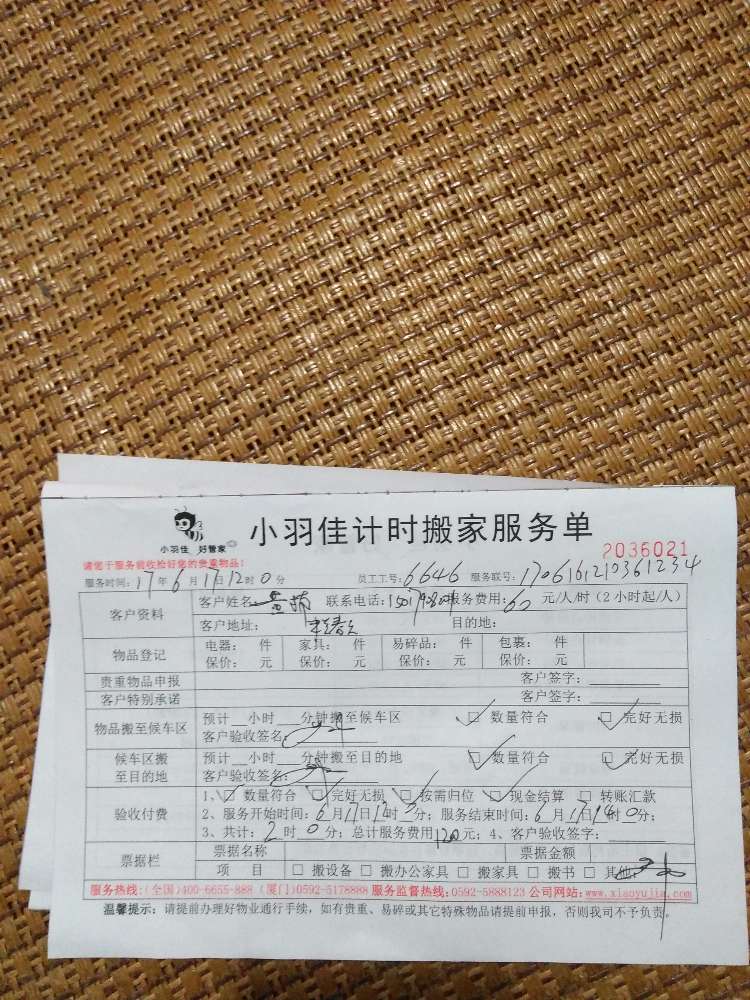 小羽佳 好管家
小羽佳计时搬家服务单
2036021
请您于服务验收检好您的贵重物品！
服务时间：17年6月17日12时0分 员工工号：6646 服务联号：1706161210361234
客户资料 客户姓名： 联系电话： 服务费用：60 元/人/时（2小时起/人）
客户地址： 目的地：
物品登记 电器： 件 家具： 件 易碎品： 件 包裹： 件
保价： 元 保价： 元 保价： 元 保价： 元
贵重物品申报 客户签字：
客户特别承诺 客户签字：
物品搬至候车区 预计__小时___分钟搬至候车区 □ 数量符合 □ 完好无损
客户验收签名：
候车区搬至目的地 预计__小时___分钟搬至目的地 □ 数量符合 □ 完好无损
客户验收签名：
验收付费 1、□ 数量符合 □ 完好无损 □ 按需归位 □ 现金结算 □ 转账汇款
2、服务开始时间：6月17日12时0分；服务结束时间：6月17日14时0分；
3、共计：2时0分；总计服务费用120元；4、客户验收签字：
票据栏 票据名称 票据金额
项 目 □ 搬设备 □ 搬办公家具 □ 搬家具 □ 搬书 □ 其他
服务热线：（全国）400-6655-888（厦门）0592-5178888 服务监督热线：0592-5888123 公司网站：www.xiaoyujia.com
温馨提示：请提前办理好物业通行手续，如有贵重、易碎或其它特殊物品请提前申报，否则我司不予负责。